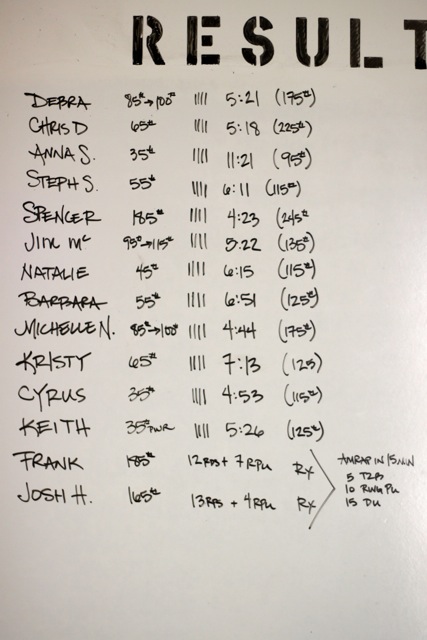 RESULT
DEBRA 85# → 100# |||| 5:21 (175#)
CHRIS D 65# |||| 5:18 (225#)
ANNA S. 35# |||| 11:21 (95#)
STEPH S. 55# |||| 6:11 (115#)
SPENCER 185# |||| 4:23 (245#
JIM Mc 95# → 115# |||| 5:22 (135#)
NATALIE 45# |||| 6:15 (115#)
BARBARA 55# |||| 6:51 (125#)
MICHELLE N. 85# → 100# |||| 4:44 (175#)
KRISTY 65# |||| 7:13 (125)
CYRUS 35# |||| 4:53 (115#)
KEITH 35# PWR |||| 5:26 (125#)
FRANK 185# 12 RDS + 7 RPU RX
JOSH H. 165# 13 RDS + 4 RPU RX
AMRAP IN 15 MIN
5 T2B
10 RING PU
15 DU